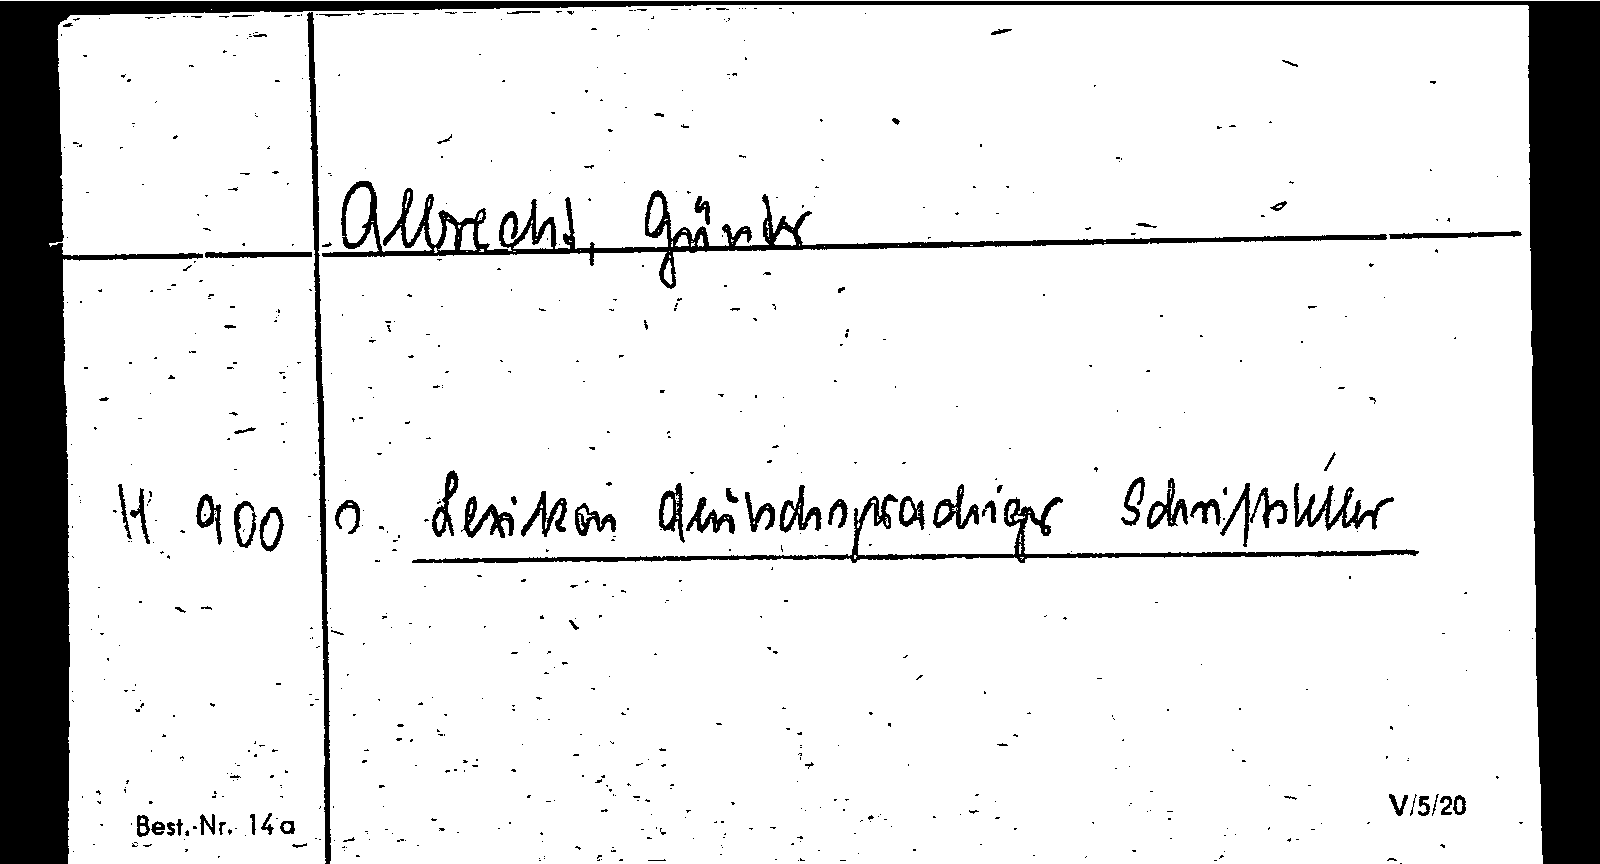 Albrecht, Günter
H 900 0 Lexikon deutschsprachiger Schriftsteller
V/5/20
Best.-Nr. 14a